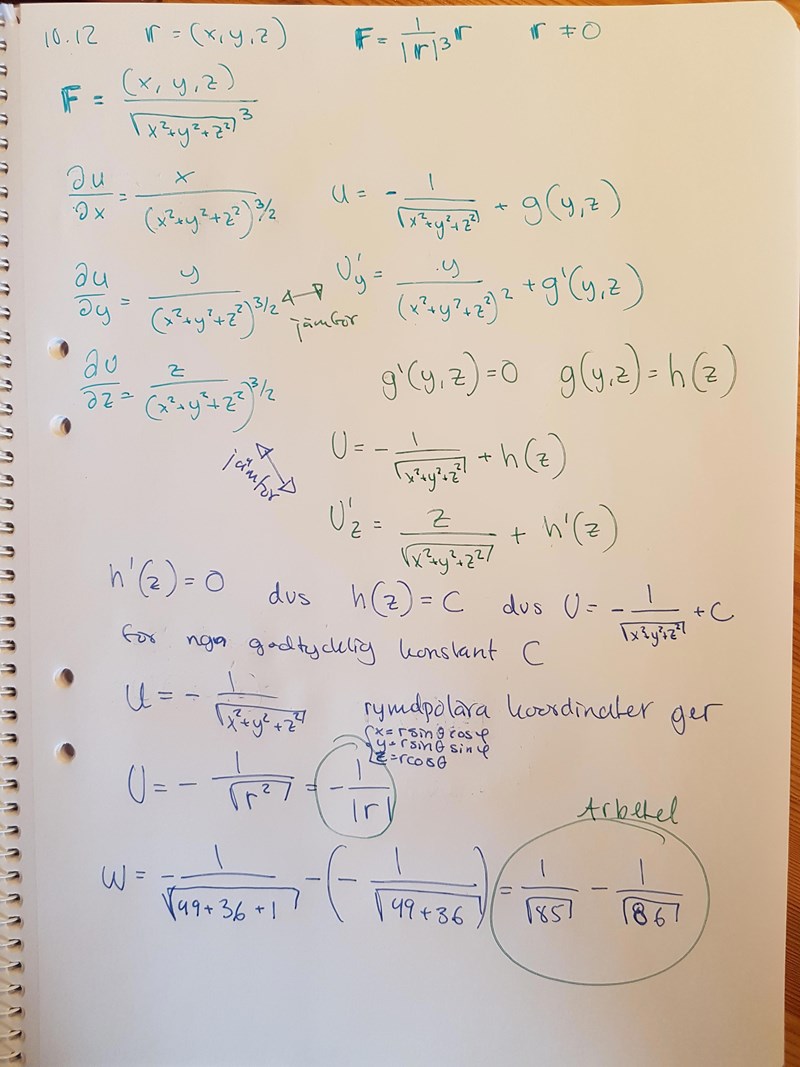 10.12 𝕣 = (x, y, z) 𝔽 = 1/|𝕣|³ 𝕣 𝕣 ≠ 0
𝔽 = (x, y, z)/√(x²+y²+z²)³
∂u/∂x = x/(x²+y²+z²)^3/2 u = -1/√(x²+y²+z²) + g(y,z)
∂u/∂y = y/(x²+y²+z²)^3/2 U'y = y/(x²+y²+z²)² + g'(y,z)
jämför
∂U/∂z = z/(x²+y²+z²)^3/2 g'(y,z)=0 g(y,z)=h(z)
jämför
U = -1/√(x²+y²+z²) + h(z)
U'z = z/√(x²+y²+z²) + h'(z)
h'(z)=0 dvs h(z)=C dvs U = -1/√(x²+y²+z²) + C
för nga godtycklig konstant C
U = -1/√(x²+y²+z²) rymdpolära koordinater ger
x=rsinθcosφ
y=rsinθsinφ
z=rcosθ
U = -1/√(r²) = -1/|r|
Arbetet
W = -1/√(49+36+1) - (-1/√(49+36)) = 1/√85 - 1/√86